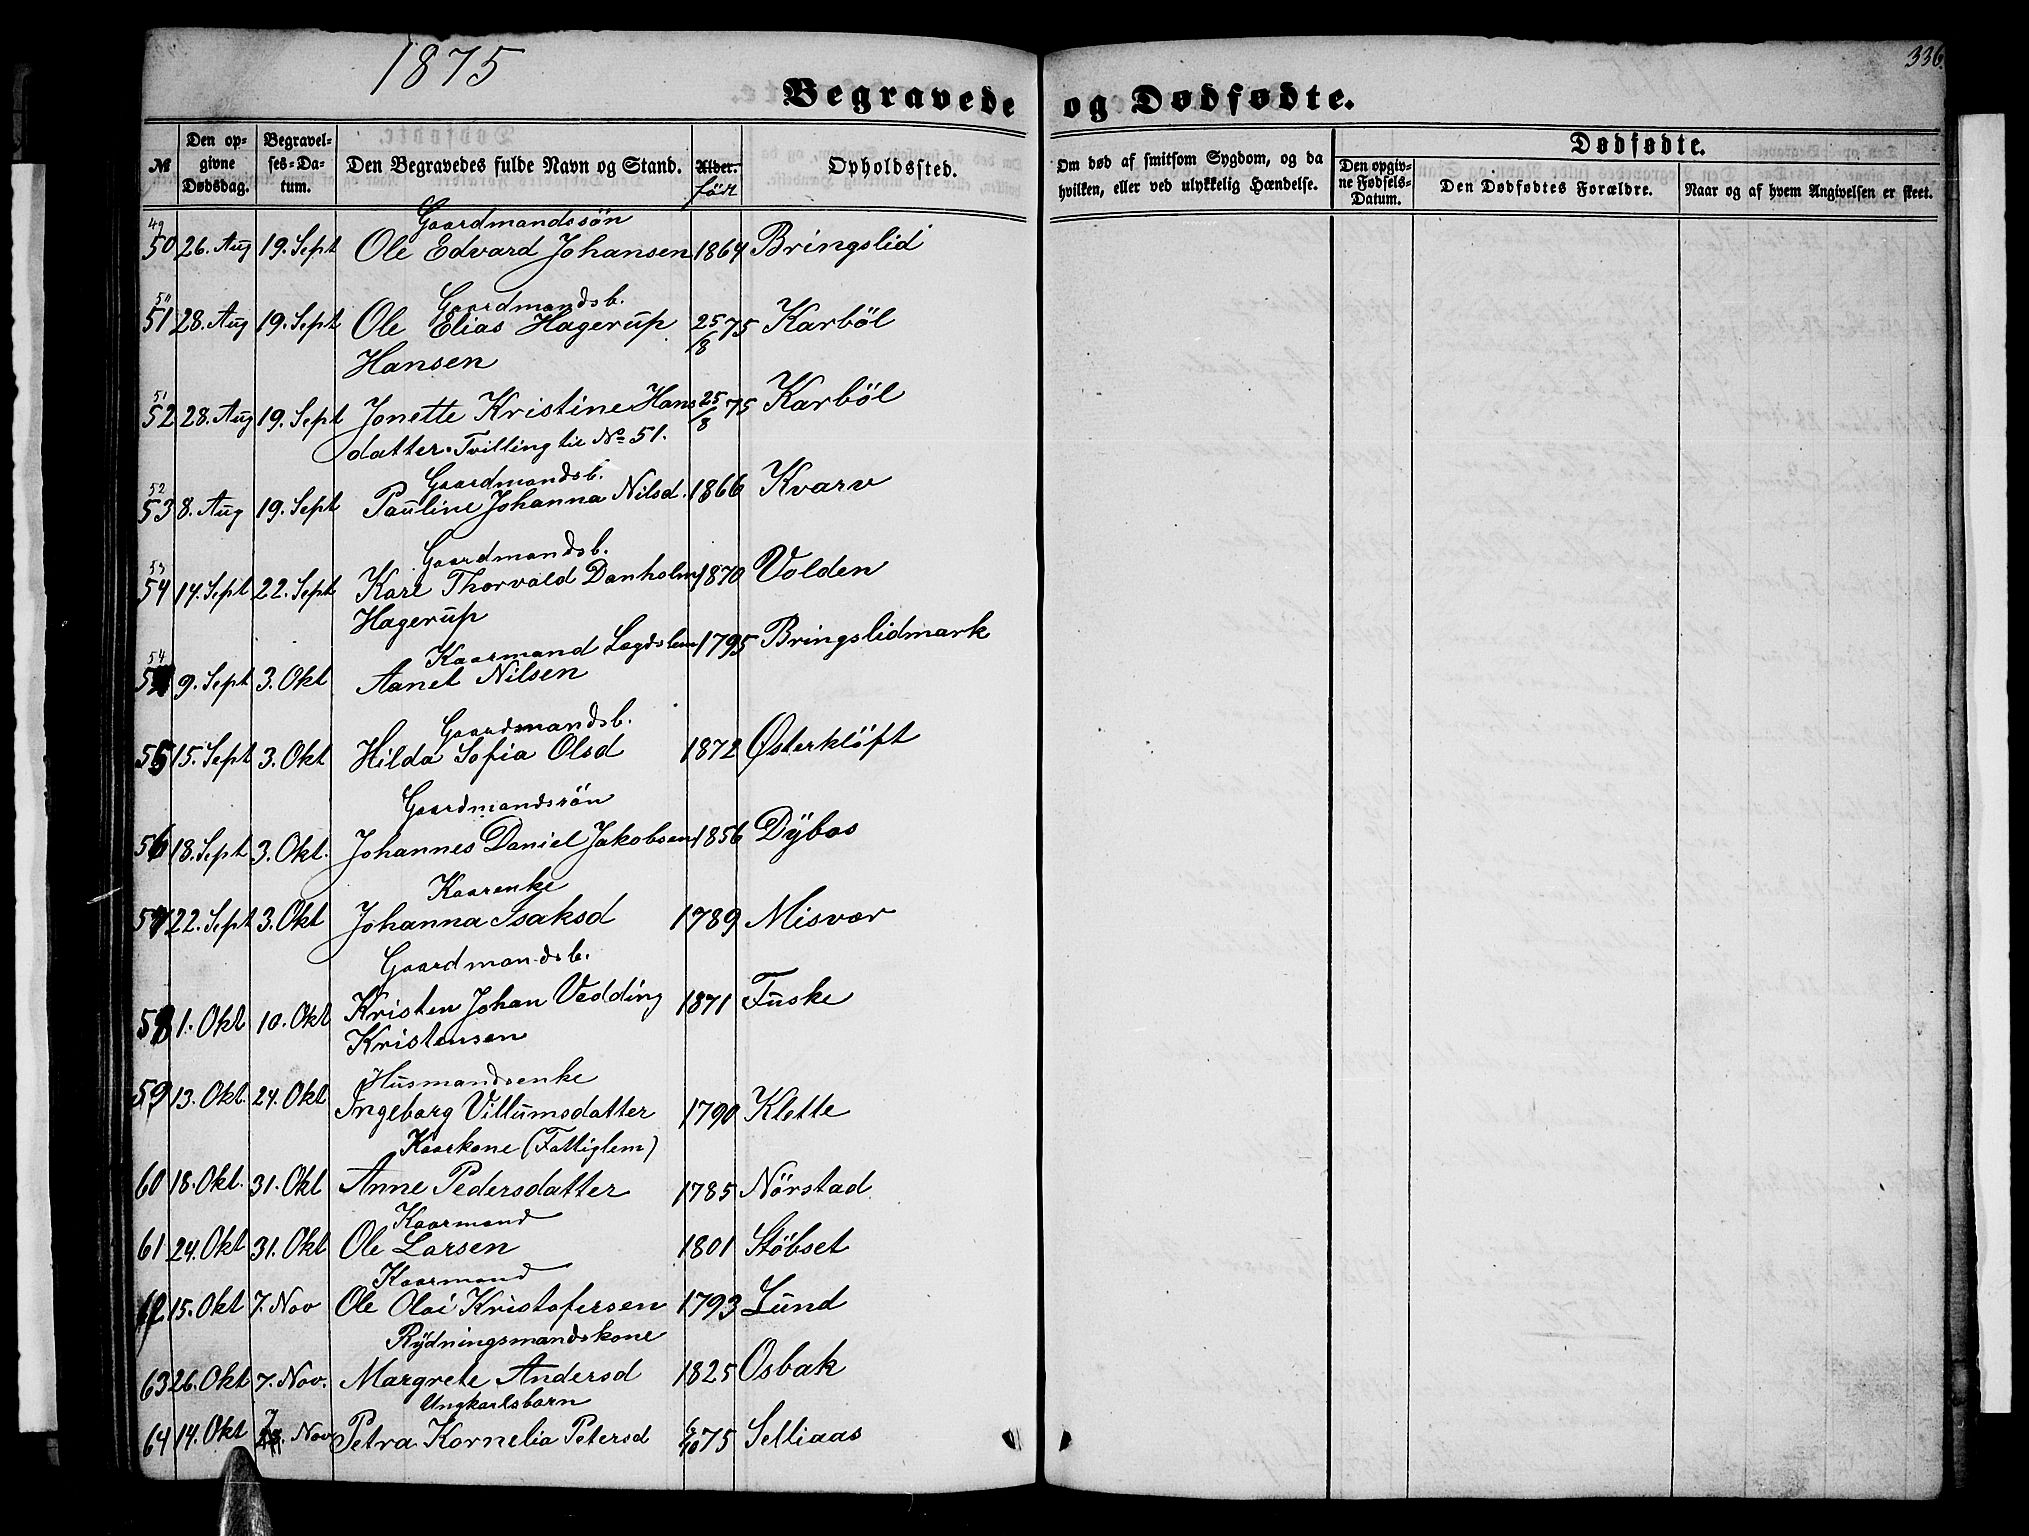 1875
336.
Begravede og Dødfødte.
№
Den opgivne Dødsdag.
Begravelses-Datum.
Den Begravedes fulde Navn og Stand.
Alder.
før
Opholdssted.
Om død af smitsom Sygdom, og da hvilken, eller ved ulykkelig Hændelse.
Dødfødte.
Den opgivne Fødsels-Datum.
Den Dødfødtes Forældre.
Naar og af hvem Angivelsen er skeet.
49 Gaardmandssön
50 26. Aug 19. Sept Ole Edvard Johansen 1864 Bringslid
50 Gaardmandsb.
51 28. Aug 19. Sept Ole Elias Hagerup 25/8 75 Karböl
Hansen
51
52 28. Aug 19. Sept Jonette Kristine Hans 25/8 75 Karböl
datter. Tvilling til No 51.
52 Gaardmandsb.
53 8. Aug 19. Sept Pauline Johanna Nilsd. 1866 Kvarv
53 Gaardmandsb.
54 14. Sept 22. Sept Karl Thorvald Danholm 1870 Volden
Hagerup
54 Kaarmand Lægdslem 1795 Bringslidmark
9. Sept 3. Okt Aanet Nilsen
Gaardmandsb.
55 15. Sept 3. Okt Hilda Sofia Olsd 1872 Østerklöft
Gaardmandssön
56 18. Sept 3. Okt. Johannes Daniel Jakobsen 1856 Dybos
Kaarenke
57 22. Sept 3. Okt Johanna Isaksd 1789 Misvær
Gaardmandsb.
58 1. Okt 10. Okt Kristen Johan Vedding 1871 Fuske
Kristensen
Husmandsenke
59 13. Okt. 24. Okt Ingeborg Villumsdatter 1790 Klette
Kaarkone (Fattiglem)
60 18. Okt. 31. Okt Anne Pedersdatter 1785 Nörstad
Kaarmand
61 24. Okt 31. Okt Ole Larsen 1801 Stöbset
Kaarmand
62 15. Okt 7. Nov Ole Olai Kristofersen 1793 Lund
Rydningsmandskone
63 26. Okt 7. Nov. Margrete Andersd 1825 Osbak
Ungkarlsbarn
64 14. Okt 7 Nov Petra Kornelia Petersd 6/10 75 Selliaas